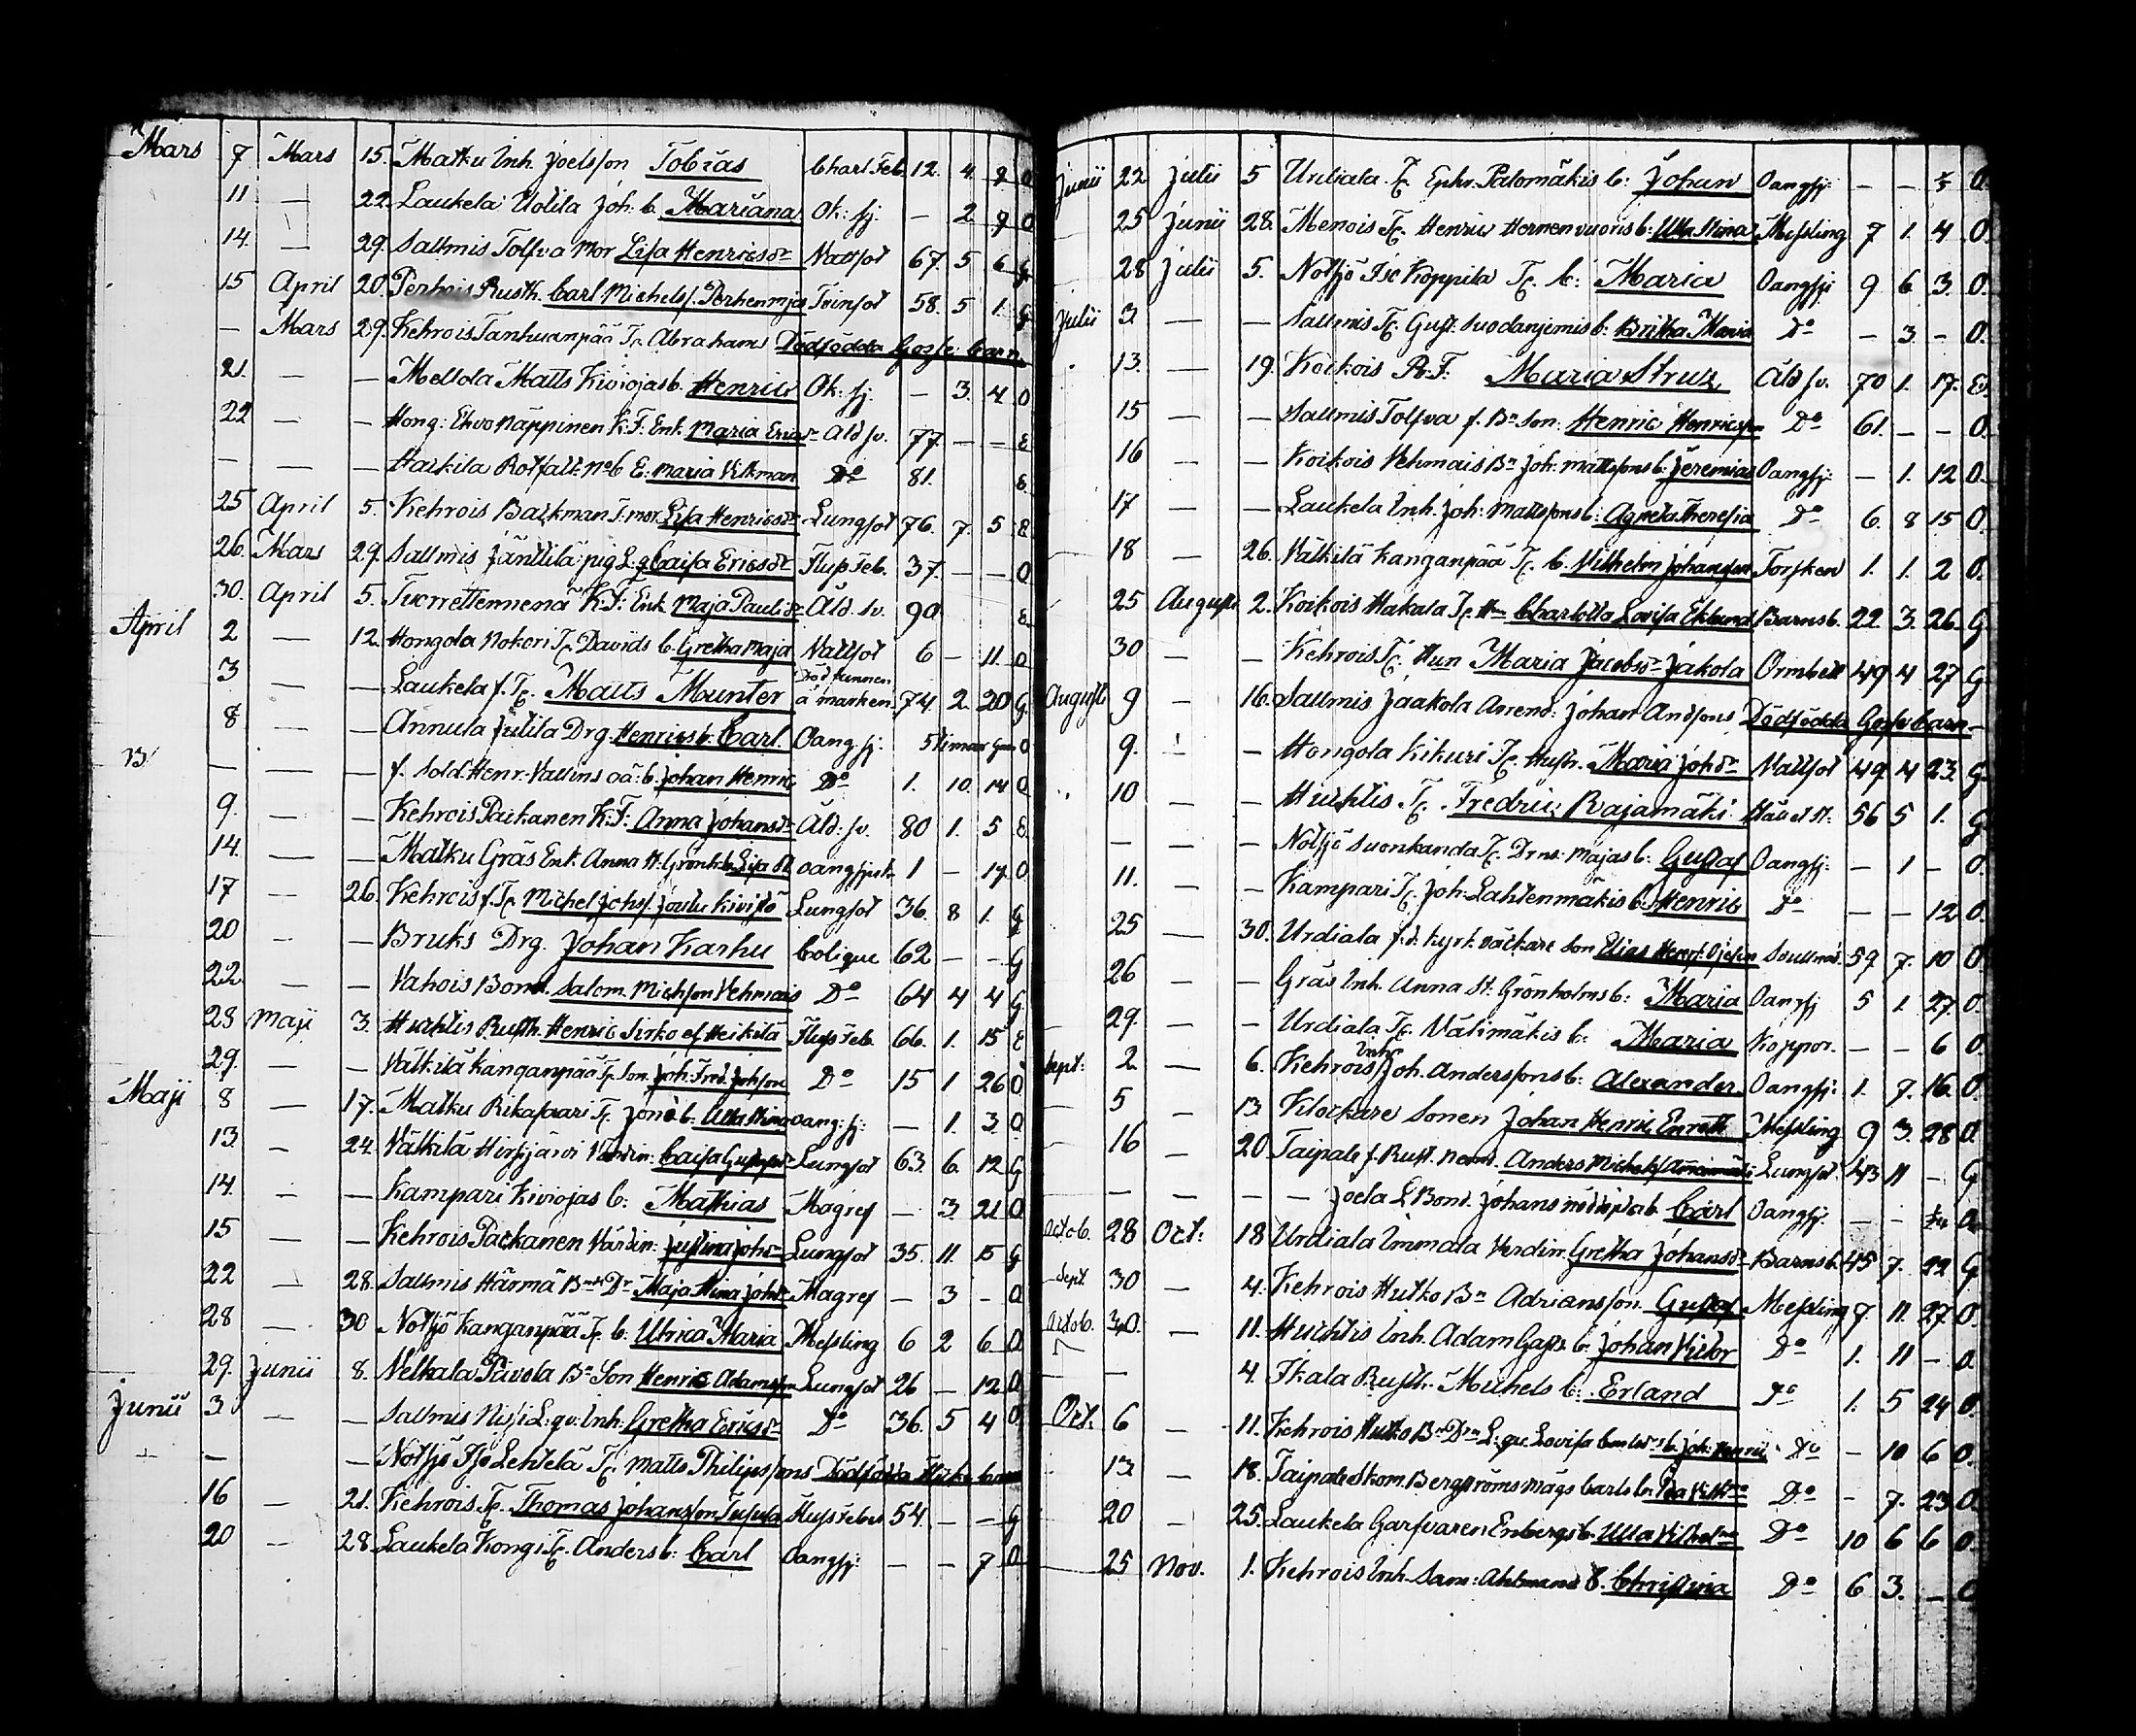 Mars 7 Mars 15. Matku Inh. Joelsson Tobias Charl Feb. 12. 4. 9 O
11 — 22. Laukela Uotila Joh: b. Mariana Ok: sj. — 2 9 O
14. — 29. Sallmis Tolfva Mor Lisa Henricsdr Nattsot 67. 5 6 G
15 April 20. Perhois Rusth. Carl Michelss. Perhenmja Tvinsot 58. 5 1. G
— Mars 29. Kehrois Tanhuanpää Tp. Abrahams Dödfödda Gosse barn
21. — — Mellola Matts Kiviojas b. Henric Ok: sj. — 3. 4. O
22 — — Hong: Ehvo Näppinen K.F: Enk. Maria Ericsdr Åld sv. 77. — — E
— — — Haikila Rotfatt. No 6 E: Maria Vikman Do 81. E.
25 April 5. Kehrois Backman F. mor Lisa Henricsdr Lungsot 76. 7. 5 E
26. Mars 29. Sallmis Jänttilä pig L:g Caisa Ericsdr Flussfeb. 37. — — O
30. April 5. Tuorrettenmenä K.F: Enk. Maja Paulsdr Åld. sv. 90 E
April 2 — 12. Hongola Nokori Tp. Davids b. Gretha Maja Nattsot 6 — 11. O
3 — — Laukela f. Tp. Matts Munter Död funnen å marken 74. 2. 20 G.
8 — — Annula Jutila Drg. Henrics b. Carl Oang sj. 5 timar gam O
— — — f. Sold. Henr. Vallins oä: b. Johan Henric Do 1. 10. 14 O
9. — — Kehrois Paikanen K.F: Anna Johansdr Åld: sv. 80 1. 5 E
14. — — Matku Gräs Enk. Anna St: Grönh: b. Lisa St oangsjuk 1 — 17 O
17 — 26. Kehrois f. Tp. Michel Johss. Joutu Kivistö Lungsot 36. 8 1. G
20 — — Bruks Drg. Johan Karhu Colique 62 — — G
22 — — Vahois Bond. Salom. Michsson Vehmais Do 64 4 4 G
28 Maji 3. Huhtis Rusth. Henric Sirko el Heikilä Flussfeb. 66. 1. 15 E
29. — — Välkilä Kanganpää Tp. Son. Joh: Fred. Johsson Do 15 1 26 O
Maji 8 — 17. Matku Rikasaari Tp. Jone b. Ulla Stina oang: sj: — 1. 3 O
13. — 24. Välkilä Hirsjärvi Värdin: Caisa Gustafsdr Lungsot 63. 6. 12 G
14. — — Kampari Kiviojas b: Mathias Magref — 3. 21 O
15 — — Kehrois Päckanen Värdin: Justina Johsdr Lungsot 35. 11. 15 G
22 — 28. Sallmis Härmä Bnds Dr Maja Stina Johsdr Magref — 3 — O
28 — 30 Notsjö Kanganpää Tp. b: Ulrica Maria Messling 6 2 6 O
29. Junii 8. Velkala Päivola Bn Son Henric Adamsson Lungsot 26 — 12 O
Junii 3 — — Sallmis Nissi L: qv: Inh: Gretha Ericsdr Do 36. 5 4 O
— — — Notsjö Isjö Lehtelä Tp. Matts Philipssons Dödfödda Flicke barn
16 — 21. Kehrois Tp. Thomas Johansson Tupula Flussfeber 54. — — G
20 — 28. Laukela Kongi Tp. Anders b: Carl Oangsj: — — 7 O
Junii 22 Julii 5 Urdiala Tp. Ephr. Palomäkis b: Johan Oangsj: — — O.
25 Junii 28. Menois Tp. Henric Hermenvuoris b: Ulla Stina Messling 7 1. 4 O.
28 Julii 5. Notsjö Isc Koppila Tp. b: Maria Oangsj: 9 6 3. O.
Julii 3 — — Sallmis Tp. Gust. Suodanjemis b: Britha Maria Do — 3. — O.
13. — 19. Koikois R.F. Maria Struz Åld sv. 70 1. 17. E.
15 — — Sallmis Tolfva f. Bn Son: Henric Henricsson Do 61. — — O.
16 — — Koikois Vehmais Bn Joh: Mattssons b: Jeremias Oangsj: — 1. 12 O.
17 — — Laukela Inh. Joh: Mattssons b: Agneta Theresia Do 6. 8 15 O.
18 — 26. Välkilä Kanganpää Tp. b. Vilhelm Johansson Torsken 1. 1. 2 O.
25 Augusti 2. Koikois Hakala Tp. Hu Charlotta Lovisa Eklund Barnsb. 22. 3. 26. G
30 — — Kehrois Tp. Hun Maria Jacobsdr Jakola Ormbett 49. 4 27 G
Augusti 9 — 16. Sallmis Jaakola Arrend: Johan Andssons Dödfödda Gosse barn —
9. — — Hongola Kikuri Tp. Hustr. Maria Johsdr Nattsot 49. 4 23. G
10 — — Huhtis Tp. Fredric Rajamäki Håll et st. 56 5 1. G
— — — Notsjö Suonkanda Tp. Drns: Majas b: Gustaf Oangsj: — 1 — O.
11. — — Kampari Tp. Joh: Lahtenmäkis b: Henric Do — — 12 O.
25 — 30. Urdiala f.d. kyrk väckare Son Elias Henr: Ojasen 59 7. 10 O.
26 — — Gräs Inh. Anna St: Grönholms b: Maria Oangsj 5 1. 27. O.
29. — — Urdiala Tp. Välimäkis b: Maria Koppor. — — 6 O.
Sept: 2 — 6. Kehrois Inh: Joh. Anderssons b: Alexander Oangsj: 1. 9. 16. O.
5 — 13. Klockare Sonen Johan Henric Enroth Messling 9 3. 28 O.
16 — 20 Taipale f. Rust. Anders Michelss Lungsot. 43 11 — G
— — — Joela L Bond. Johans b. Carl Oangsj: — — O
Octob. 28 Oct: 18 Urdiala Immala Verdin: Gretha Johansdr Barnsb. 45 7. 22 G
Sept 30 — 4. Kehrois Hutko Bn Adriansson Gustaf Messling 7. 11. 27. O.
Octob. 30. — 11. Huhtis Inh. Adam Gaps. b. Johan Victor Do 1. 11 — O.
— — 4. Ikala Rusth. Michels b: Erland Do 1. 5 24 O.
Oct. 6 — 11. Kehrois Hutko Bn Drn L: qv. Lovisa b. Joh: Henric Do — 10 6 O.
13 — 18. Taipale Skom. Bergströms Mågs Carls b. Do — 7. 23 O.
20 — 25. Laukela Garfvaren Enbergs b. Ulla Vilhelma Do 10 6 6 O.
25 Nov. 1. Kehrois Inh. Sam: Ahlmans b. Christina Do 6 3. — O